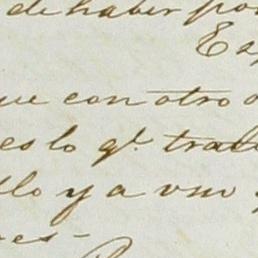 de haber po
Es
ue con otro
es lo q.e tra
llo y a uso
es-